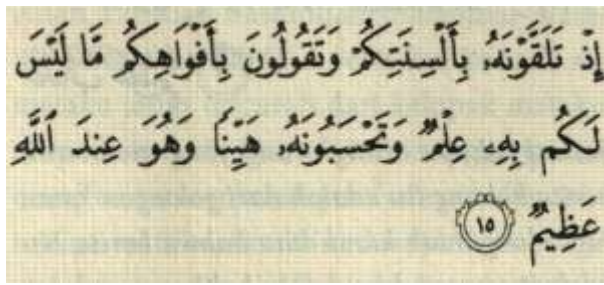 إِذْ تَلَقَّوْنَهُۥ بِأَلْسِنَتِكُمْ وَتَقُولُونَ بِأَفْوَاهِكُم مَّا لَيْسَ
لَكُم بِهِۦ عِلْمٌ وَتَحْسَبُونَهُۥ هَيِّنًا وَهُوَ عِندَ ٱللَّهِ
عَظِيمٌ ١٥